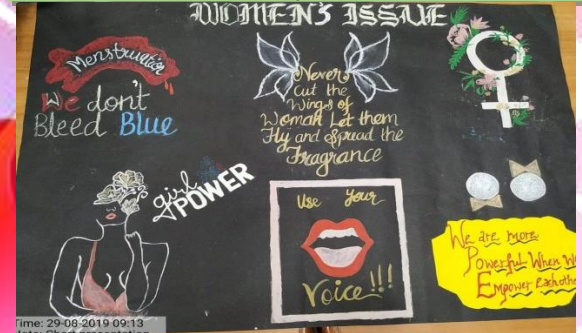 WOMEN'S ISSUE
Menstruation
We don't
Bleed Blue
Never
Cut the
Wings of
Woman Let them
Fly and Spread the
Fragrance
girl
POWER
Use Your
Voice!!!
We are more
Powerful When We
Empower Each othe
Time: 29-08-2019 09:13